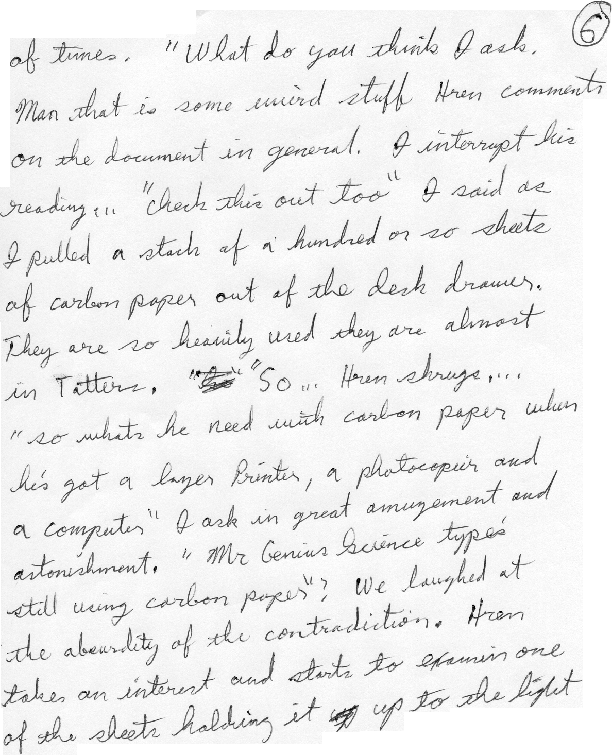 6
of times. "What do you think I ask.
Man that is some wierd stuff Hren comments
on the document in general. I interrupt his
reading... "check this out too" I said as
I pulled a stack of a hundred or so sheets
of carbon paper out of the desk drawer.
They are so heavily used they are almost
in Tatters. "So... Hren shrugs....
"so whats he need with carbon paper when
he's got a lazer Printer, a photocopier and
a computer" I ask in great amuzement and
astonishment. "Mr Genius Science type's
still using carbon paper"? We laughed at
the absurdity of the contradiction. Hren
takes an interest and starts to examin one
of the sheets holding it up to the light